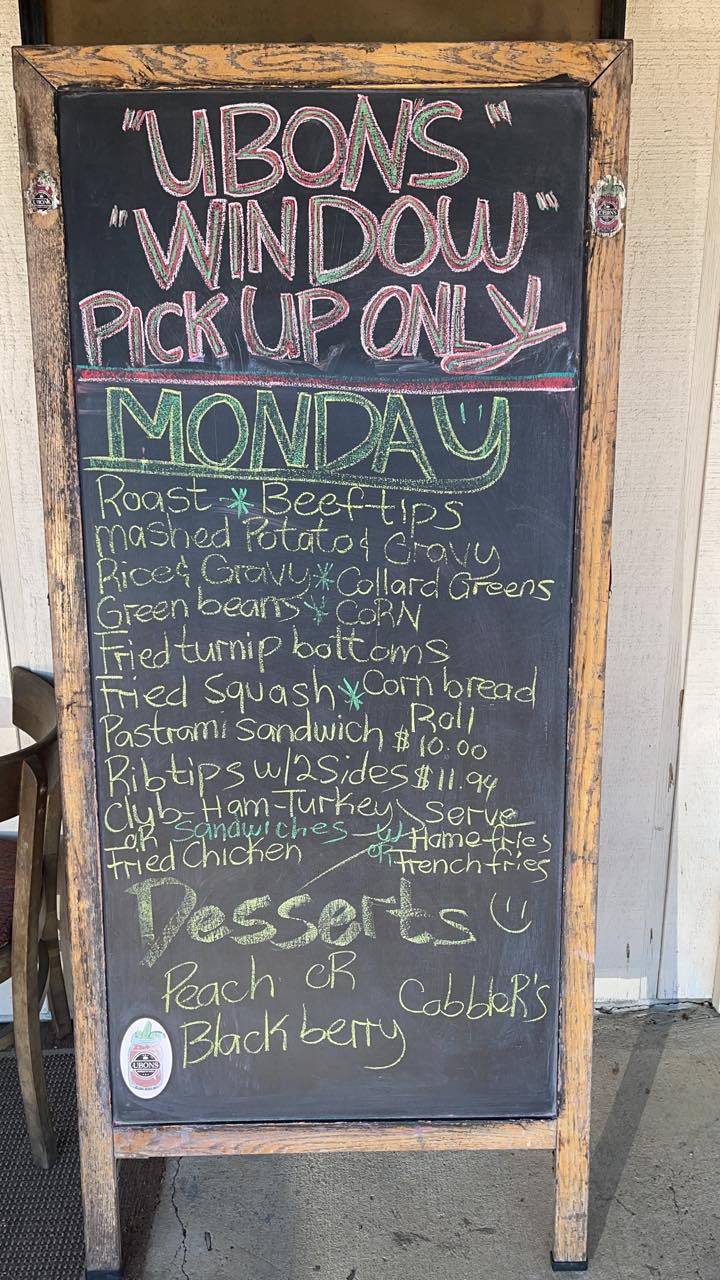 "UBON'S"
"WINDOW"
PICK UP ONLY
MONDAY
Roast * Beef tips
mashed Potato & Gravy
Rice & Gravy * Collard Greens
Green beans * CORN
Fried turnip bottoms
Fried Squash * Corn bread
Roll
Pastrami Sandwich $10.00
Rib tips w/2 Sides $11.94
Club - Ham - Turkey Serve
OR Sandwiches w/ Home fries
Fried Chicken or french fries
Desserts
Peach OR CobbleR's
Black berry
UBONS